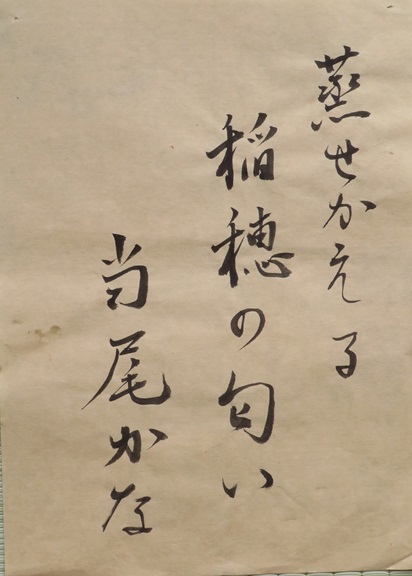 蒸せかえる
稲穂の匂い
当尾かな